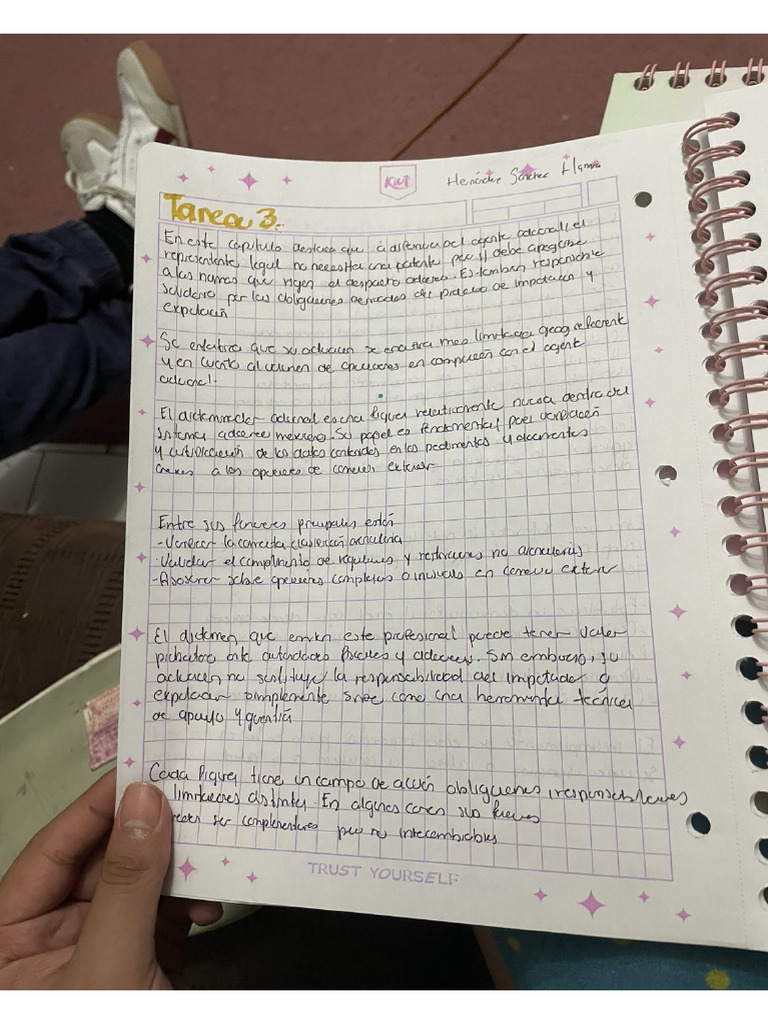 KIUT
Hernández Sánchez
Tarea 3.
En este capitulo destaca que a diferencia del agente aduanal, el
representante legal no necesita una patente pero si debe apegarse
a las normas que rigen el despacho aduanero. Es tambien responsable
solidario por las obligaciones derivadas del proceso de importacion y
exportación
Se enfatiza que su actuacion se encuentra mas limitada geograficamente
y en cuanto al volumen de operaciones en comparación con el agente
aduanal.
El dictaminador aduanal es una figura relativamente nueva dentro del
sistema aduanero mexicano. Su papel es fundamental para verificación
y autenticación de los datos contenidos en los pedimentos y documentos
anexos a las operaciones de comercio exterior
Entre sus funciones principales están
-Verificar la correcta clasificación arancelaria
-Validar el cumplimiento de regulaciones y restricciones no arancelarias
-Asesorar sobre operaciones complejas o inusuales en comercio exterior
El dictamen que emiten este profesional puede tener valor
probatorio ante autoridades fiscales y aduaneras. Sin embargo, su
actuacion no sustituye la responsabilidad del importador o
exportador simplemente sirve como una herramienta técnica
de apoyo y garantía
Cada figura tiene un campo de acción obligaciones, responsabilidades
limitaciones distintas. En algunos casos sus funciones
ser complementarias pero no intercambiables
TRUST YOURSELF